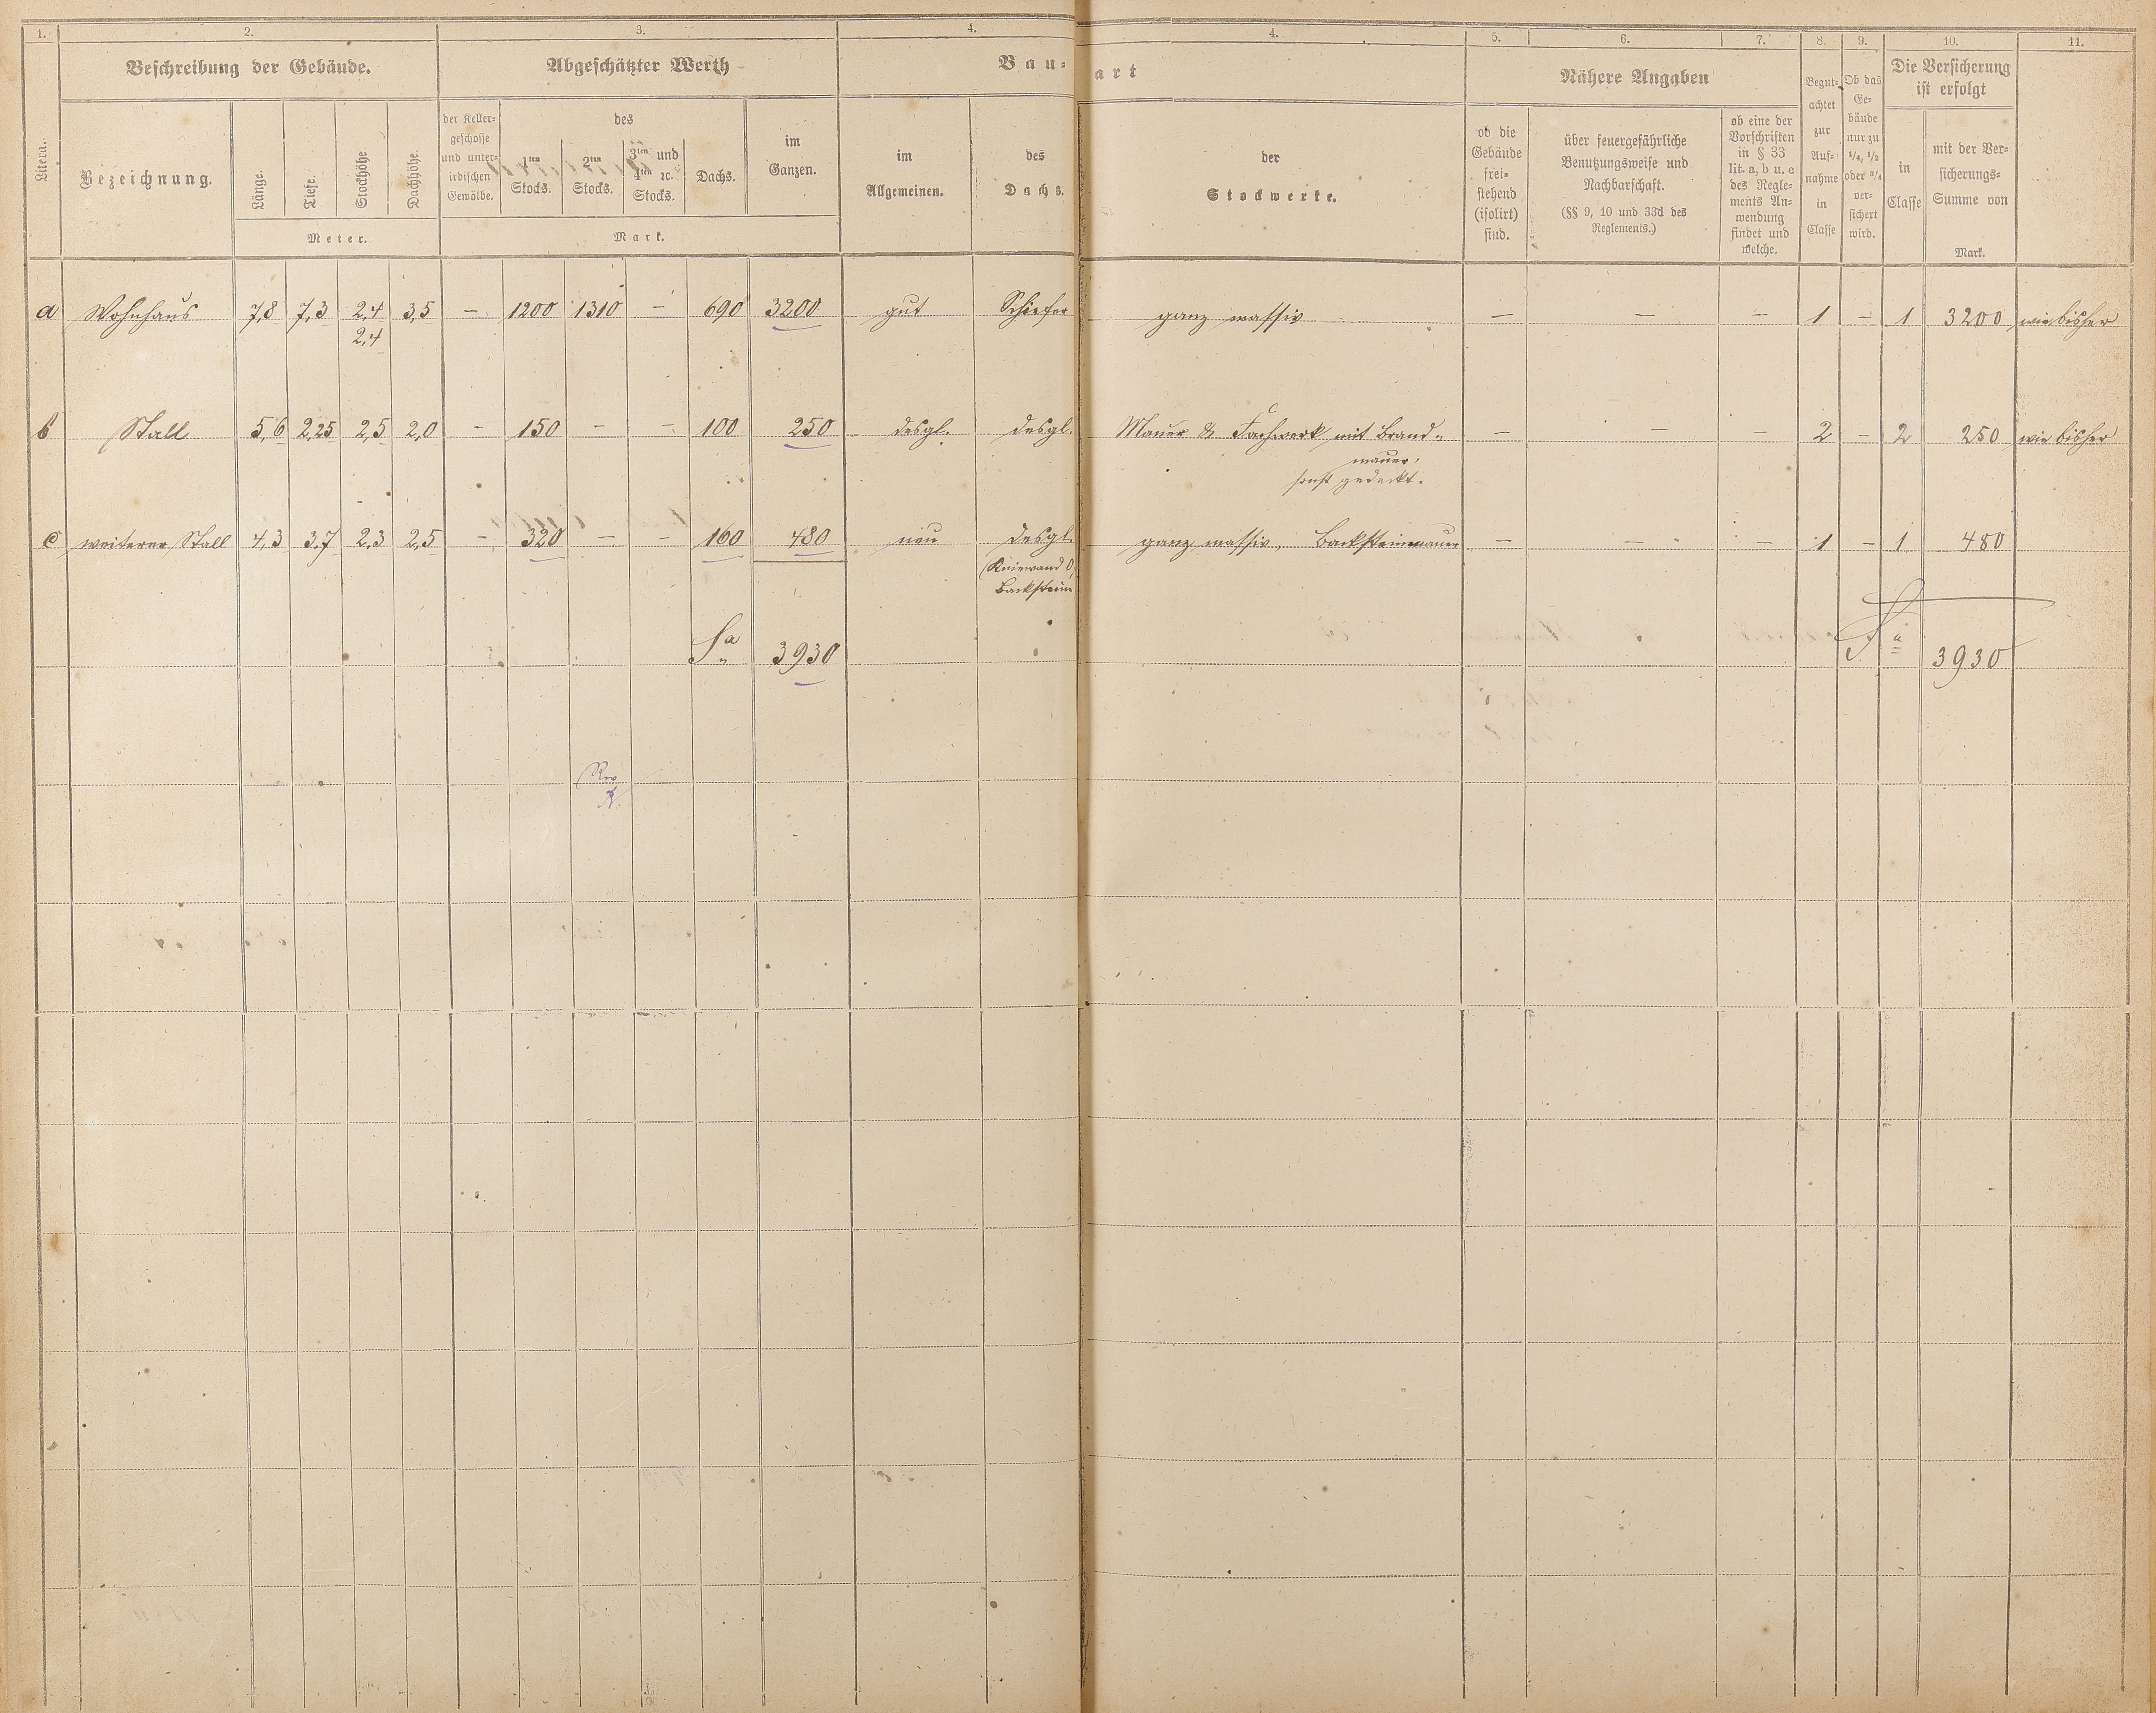 1. 2. 3. 4. 4. 5. 6. 7. 8. 9. 10. 11.
Beschreibung der Gebäude. Abgeschätzter Werth Bau- art Nähere Angaben
Die Versicherung
ist erfolgt
Littera.
Bezeichnung.
Länge.
Tiefe.
Stockhöhe.
Dachhöhe.
Meter.
der Keller-
geschosse
und unter-
irdischen
Gewölbe.
des
1ten
Stocks.
2ten
Stocks.
3ten und
4ten ꝛc.
Stocks.
Dachs.
im
Ganzen.
Mark.
im
Allgemeinen.
des
Dachs.
der
Stockwerke.
ob die
Gebäude
frei-
stehend
(isolirt)
sind.
über feuergefährliche
Benutzungsweise und
Nachbarschaft.
(§§ 9, 10 und 33d des
Reglements.)
ob eine der
Vorschriften
in § 33
lit. a, b u. c
des Regle-
ments An-
wendung
findet und
welche.
Begut-
achtet
zur
Auf-
nahme
in
Classe
Ob das
Ge-
bäude
nur zu
1/4, 1/2
oder 3/4
ver-
sichert
wird.
in
Classe
mit der Ver-
sicherungs-
Summe von
Mark.
a Wohnhaus 7,8 7,3 2,4 3,5 — 1200 1310 — 690 3200 gut Schiefer ganz massiv — — — 1 — 1 3200 wie bisher
2,4
b Stall 5,6 2,25 2,5 2,0 — 150 — — 100 250 desgl. desgl. Mauer & Fachwerk mit Brand- — — 2 — 2 250 wie bisher
mauer,
sonst gedeckt.
c weiterer Stall 4,3 3,7 2,3 2,5 — 320 — — 160 480 neu desgl. ganz massiv, Backsteinmauer — — — 1 — 1 480
(Kniewand 0,
Backstein
Sa 3930 Sa 3930
Rev